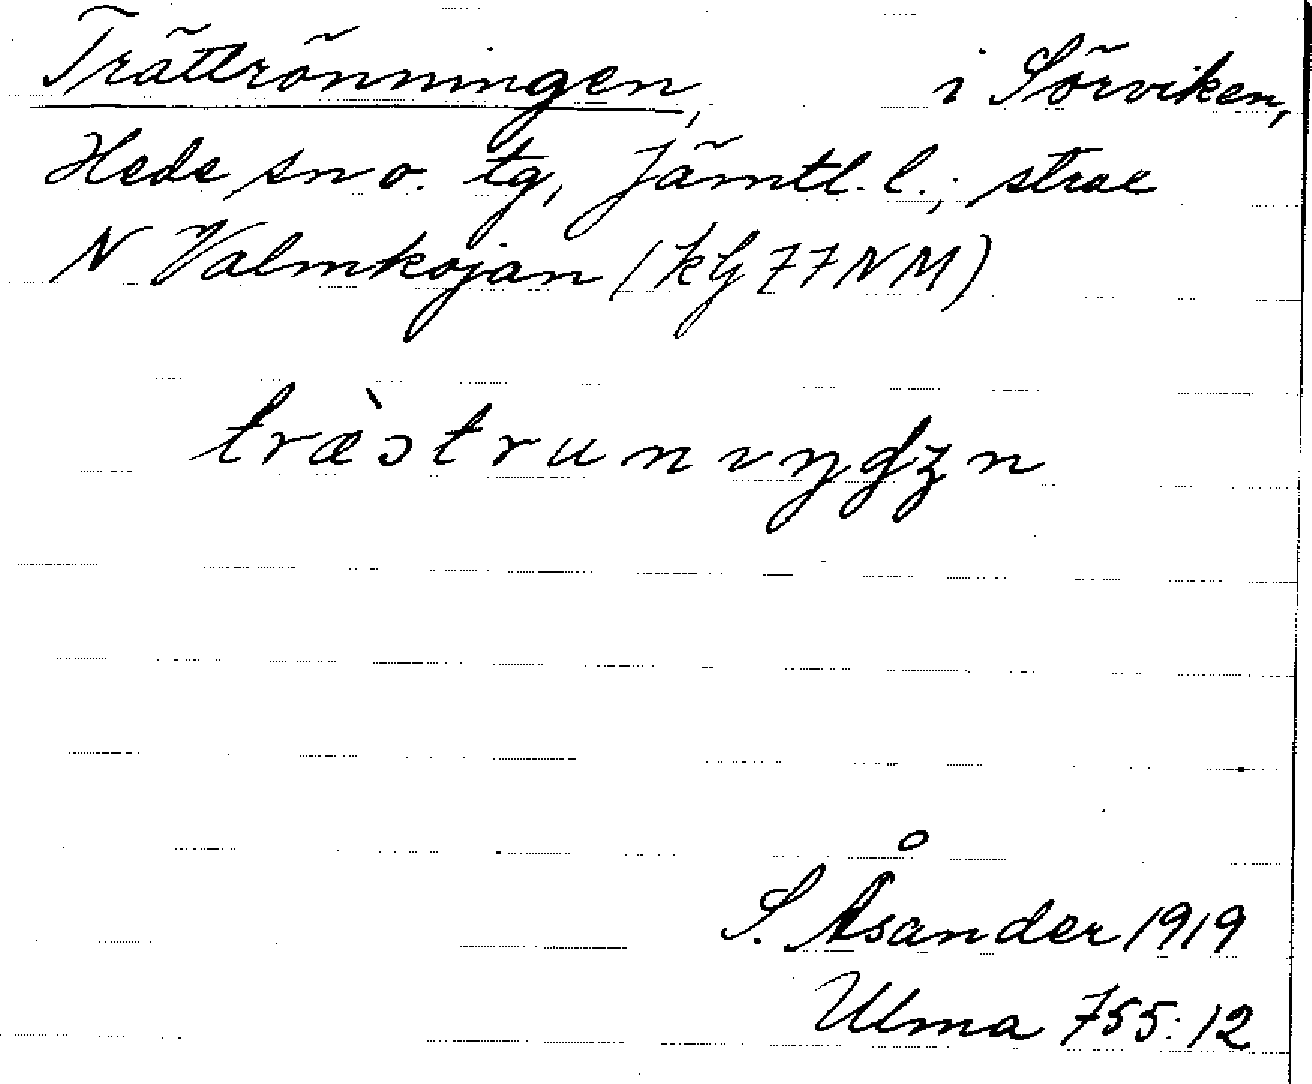 Trättrönningen, i Sörviken,
Hede sn o. tg, Jämtl. l.; strax
N Valmkojan (kG 77NM)
S. Åsander 1919
Ulma 755:12